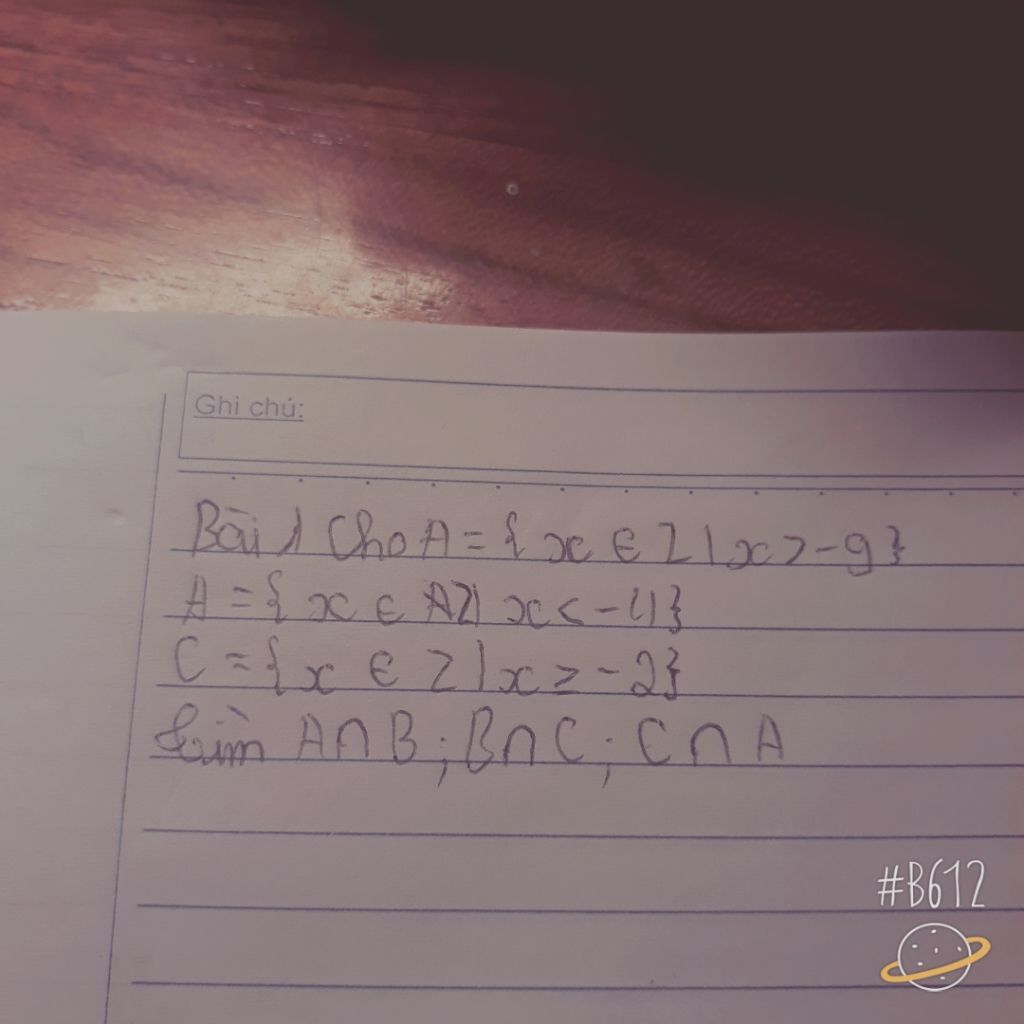 Ghi chú:
Bài 1 Cho A = { x ∈ Z | x > -9 }
A = { x ∈ AZ | x < -4 }
C = { x ∈ Z | x ≥ -2 }
tìm A ∩ B ; B ∩ C ; C ∩ A
#B612